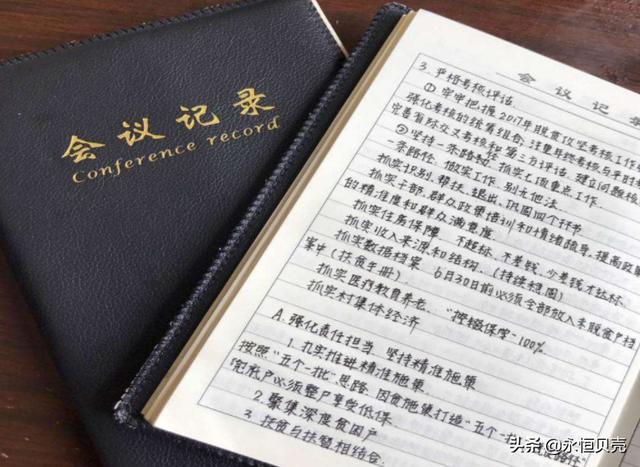 会议记录
Conference record
会议记录
3. 严格考核评估
① 牢牢把握2017年脱贫攻坚考核工作
强化考核的统筹组合,注重年终考核与平时
完善省际交叉考核和第三方评估,建立问题核
② 坚持一条路径,抓实七项重点工作
一条路径,做实工作,别无他法
抓实识别、帮扶、退出、巩固四个环节
抓实干部,群众政策培训和情绪疏导,提高政策
的精准度和群众满意度
抓实住房保障,不超标、不差钱、少差钱才达标
抓实收入来源和结构,(持续雄固)
抓实数据档案 6月30日前必须全部放入未脱贫户档
案中(扶贫手册)
抓实医疗教育养老,“控辍保学-100%
抓实村集体经济
A. 强化责任担当,坚持精准施策
1. 扎实推进精准施策
按照“五个一批”思路,因贫施策打造“五个一
兜底户必须整户享受低保
2. 聚集深度贫困户
3. 扶贫与扶智相结合
头条@永恒贝壳